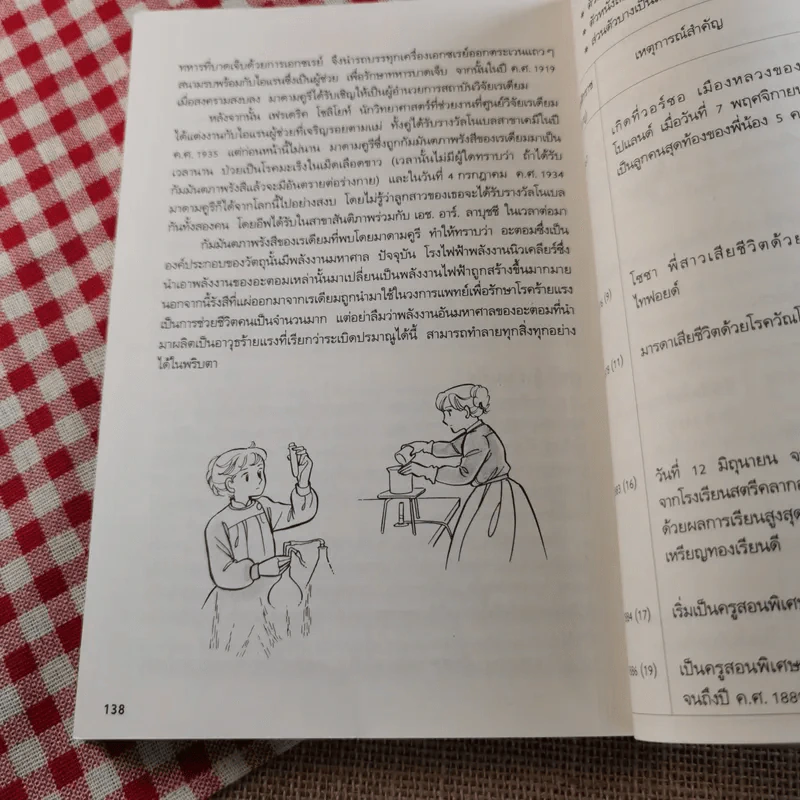 ทหารที่บาดเจ็บด้วยการเอกซเรย์ จึงนำรถบรรทุกเครื่องเอกซเรย์ออกตระเวนแถวๆ
สนามรบพร้อมกับไอแรนซึ่งเป็นผู้ช่วย เพื่อรักษาทหารบาดเจ็บ จากนั้นในปี ค.ศ. 1919
เมื่อสงครามสงบลง มาดามคูรีได้รับเชิญให้เป็นผู้อำนวยการสถาบันวิจัยเรเดียม
หลังจากนั้น เฟรเดริค โชลิโอท์ นักวิทยาศาสตร์ที่ช่วยงานที่ศูนย์วิจัยเรเดียม
ได้แต่งงานกับไอแรนผู้ช่วยที่เจริญรอยตามแม่ ทั้งคู่ได้รับรางวัลโนเบลสาขาเคมีในปี
ค.ศ. 1935 แต่ก่อนหน้านี้ไม่นาน มาดามคูรีซึ่งถูกกัมมันตภาพรังสีของเรเดียมมาเป็น
เวลานาน ป่วยเป็นโรคมะเร็งในเม็ดเลือดขาว (เวลานั้นไม่มีผู้ใดทราบว่า ถ้าได้รับ
กัมมันตภาพรังสีแล้วจะมีอันตรายต่อร่างกาย) และในวันที่ 4 กรกฎาคม ค.ศ. 1934
มาดามคูรีก็ได้จากโลกนี้ไปอย่างสงบ โดยไม่รู้ว่าลูกสาวของเธอจะได้รับรางวัลโนเบล
กันทั้งสองคน โดยอีฟได้รับในสาขาสันติภาพร่วมกับ เอช. อาร์. ลาบุซซี ในเวลาต่อมา
กัมมันตภาพรังสีของเรเดียมที่พบโดยมาดามคูรี ทำให้ทราบว่า อะตอมซึ่งเป็น
องค์ประกอบของวัตถุนั้นมีพลังงานมหาศาล ปัจจุบัน โรงไฟฟ้าพลังงานนิวเคลียร์ซึ่ง
นำเอาพลังงานของอะตอมเหล่านั้นมาเปลี่ยนเป็นพลังงานไฟฟ้าถูกสร้างขึ้นมากมาย
นอกจากนี้รังสีที่แผ่ออกมาจากเรเดียมถูกนำมาใช้ในวงการแพทย์เพื่อรักษาโรคร้ายแรง
เป็นการช่วยชีวิตคนเป็นจำนวนมาก แต่อย่าลืมว่าพลังงานอันมหาศาลของอะตอมที่นำ
มาผลิตเป็นอาวุธร้ายแรงที่เรียกว่าระเบิดปรมาณูได้นี้ สามารถทำลายทุกสิ่งทุกอย่าง
ได้ในพริบตา
138
ส่วนตัวบางเป็น
เหตุการณ์สำคัญ
เกิดที่วอร์ซอ เมืองหลวงของ
โปแลนด์ เมื่อวันที่ 7 พฤศจิกายน
เป็นลูกคนสุดท้องของพี่น้อง 5 ค
(9) โซซา พี่สาวเสียชีวิตด้วย
ไทฟอยด์
(11) มารดาเสียชีวิตด้วยโรควัณโ
(16) วันที่ 12 มิถุนายน จ
จากโรงเรียนสตรีคลากอ
ด้วยผลการเรียนสูงสุด
เหรียญทองเรียนดี
(17) เริ่มเป็นครูสอนพิเศษ
(19) เป็นครูสอนพิเศษ
จนถึงปี ค.ศ. 188